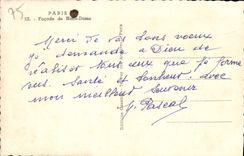 75
PARIS
12. - Façade de Notre-Dame
Merci de vos bons voeux
je demande a Dieu de
réaliser tous ceux que je forme
Santé et bonheur! avec
mon meilleur souvenir
Y. Pascal